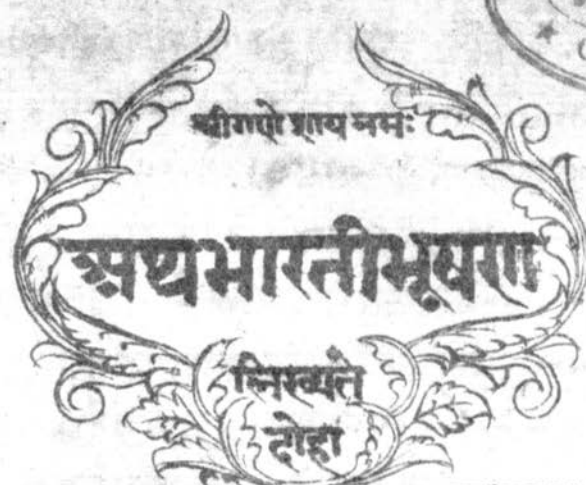 श्रीगणेशाय नमः
अथभारतीभूषण
लिख्यते
दोहा